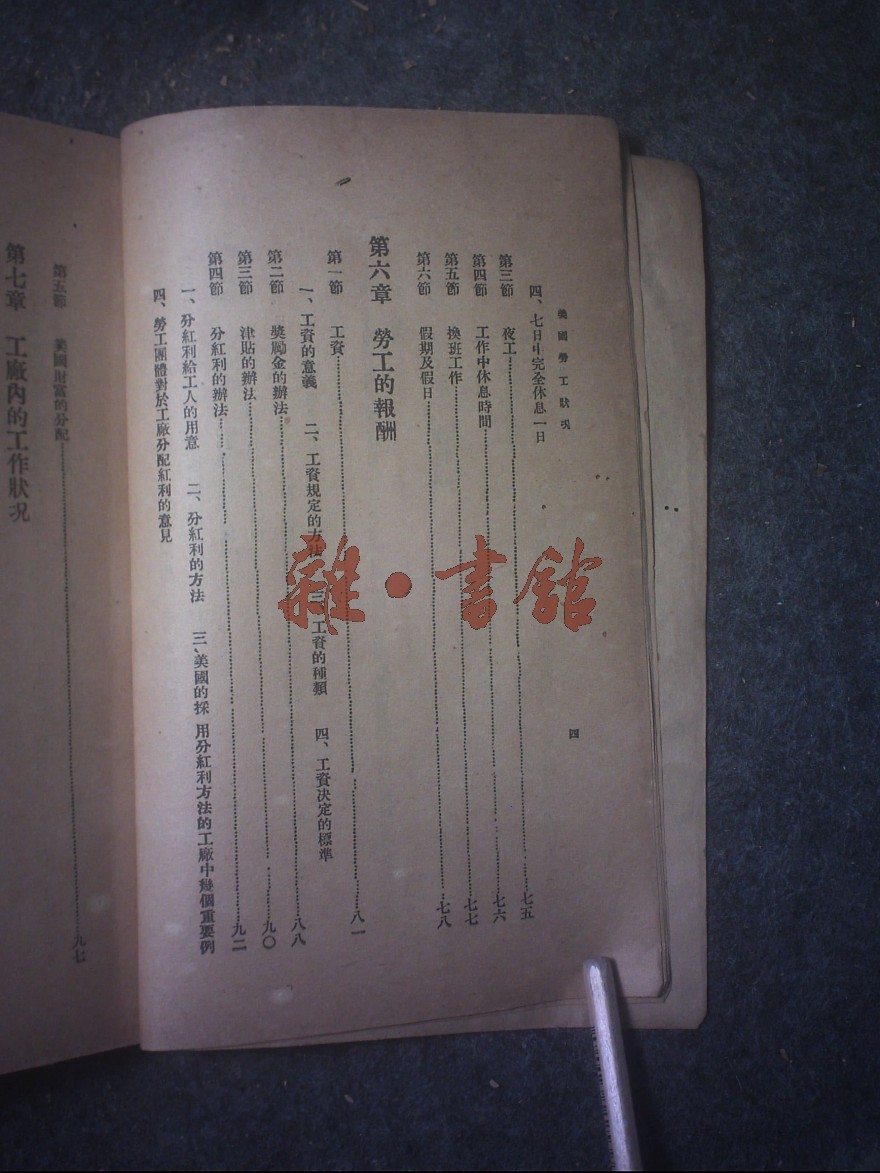 美國勞工狀況
四
四、七日中完全休息一日
第三節 夜工……七五
第四節 工作中休息時間……七六
第五節 換班工作……七七
第六節 假期及假日……七八
第六章 勞工的報酬
第一節 工資……八一
一、工資的意義 二、工資規定的方法 三、工資的種類 四、工資決定的標準
第二節 獎勵金的辦法……八八
第三節 津貼的辦法……九〇
第四節 分紅利的辦法……九二
一、分紅利給工人的用意 二、分紅利的方法 三、美國的採用分紅利方法的工廠中幾個重要例
四、勞工團體對於工廠分配紅利的意見
第五節 美國財富的分配……九七
第七章 工廠內的工作狀況
雜·書館